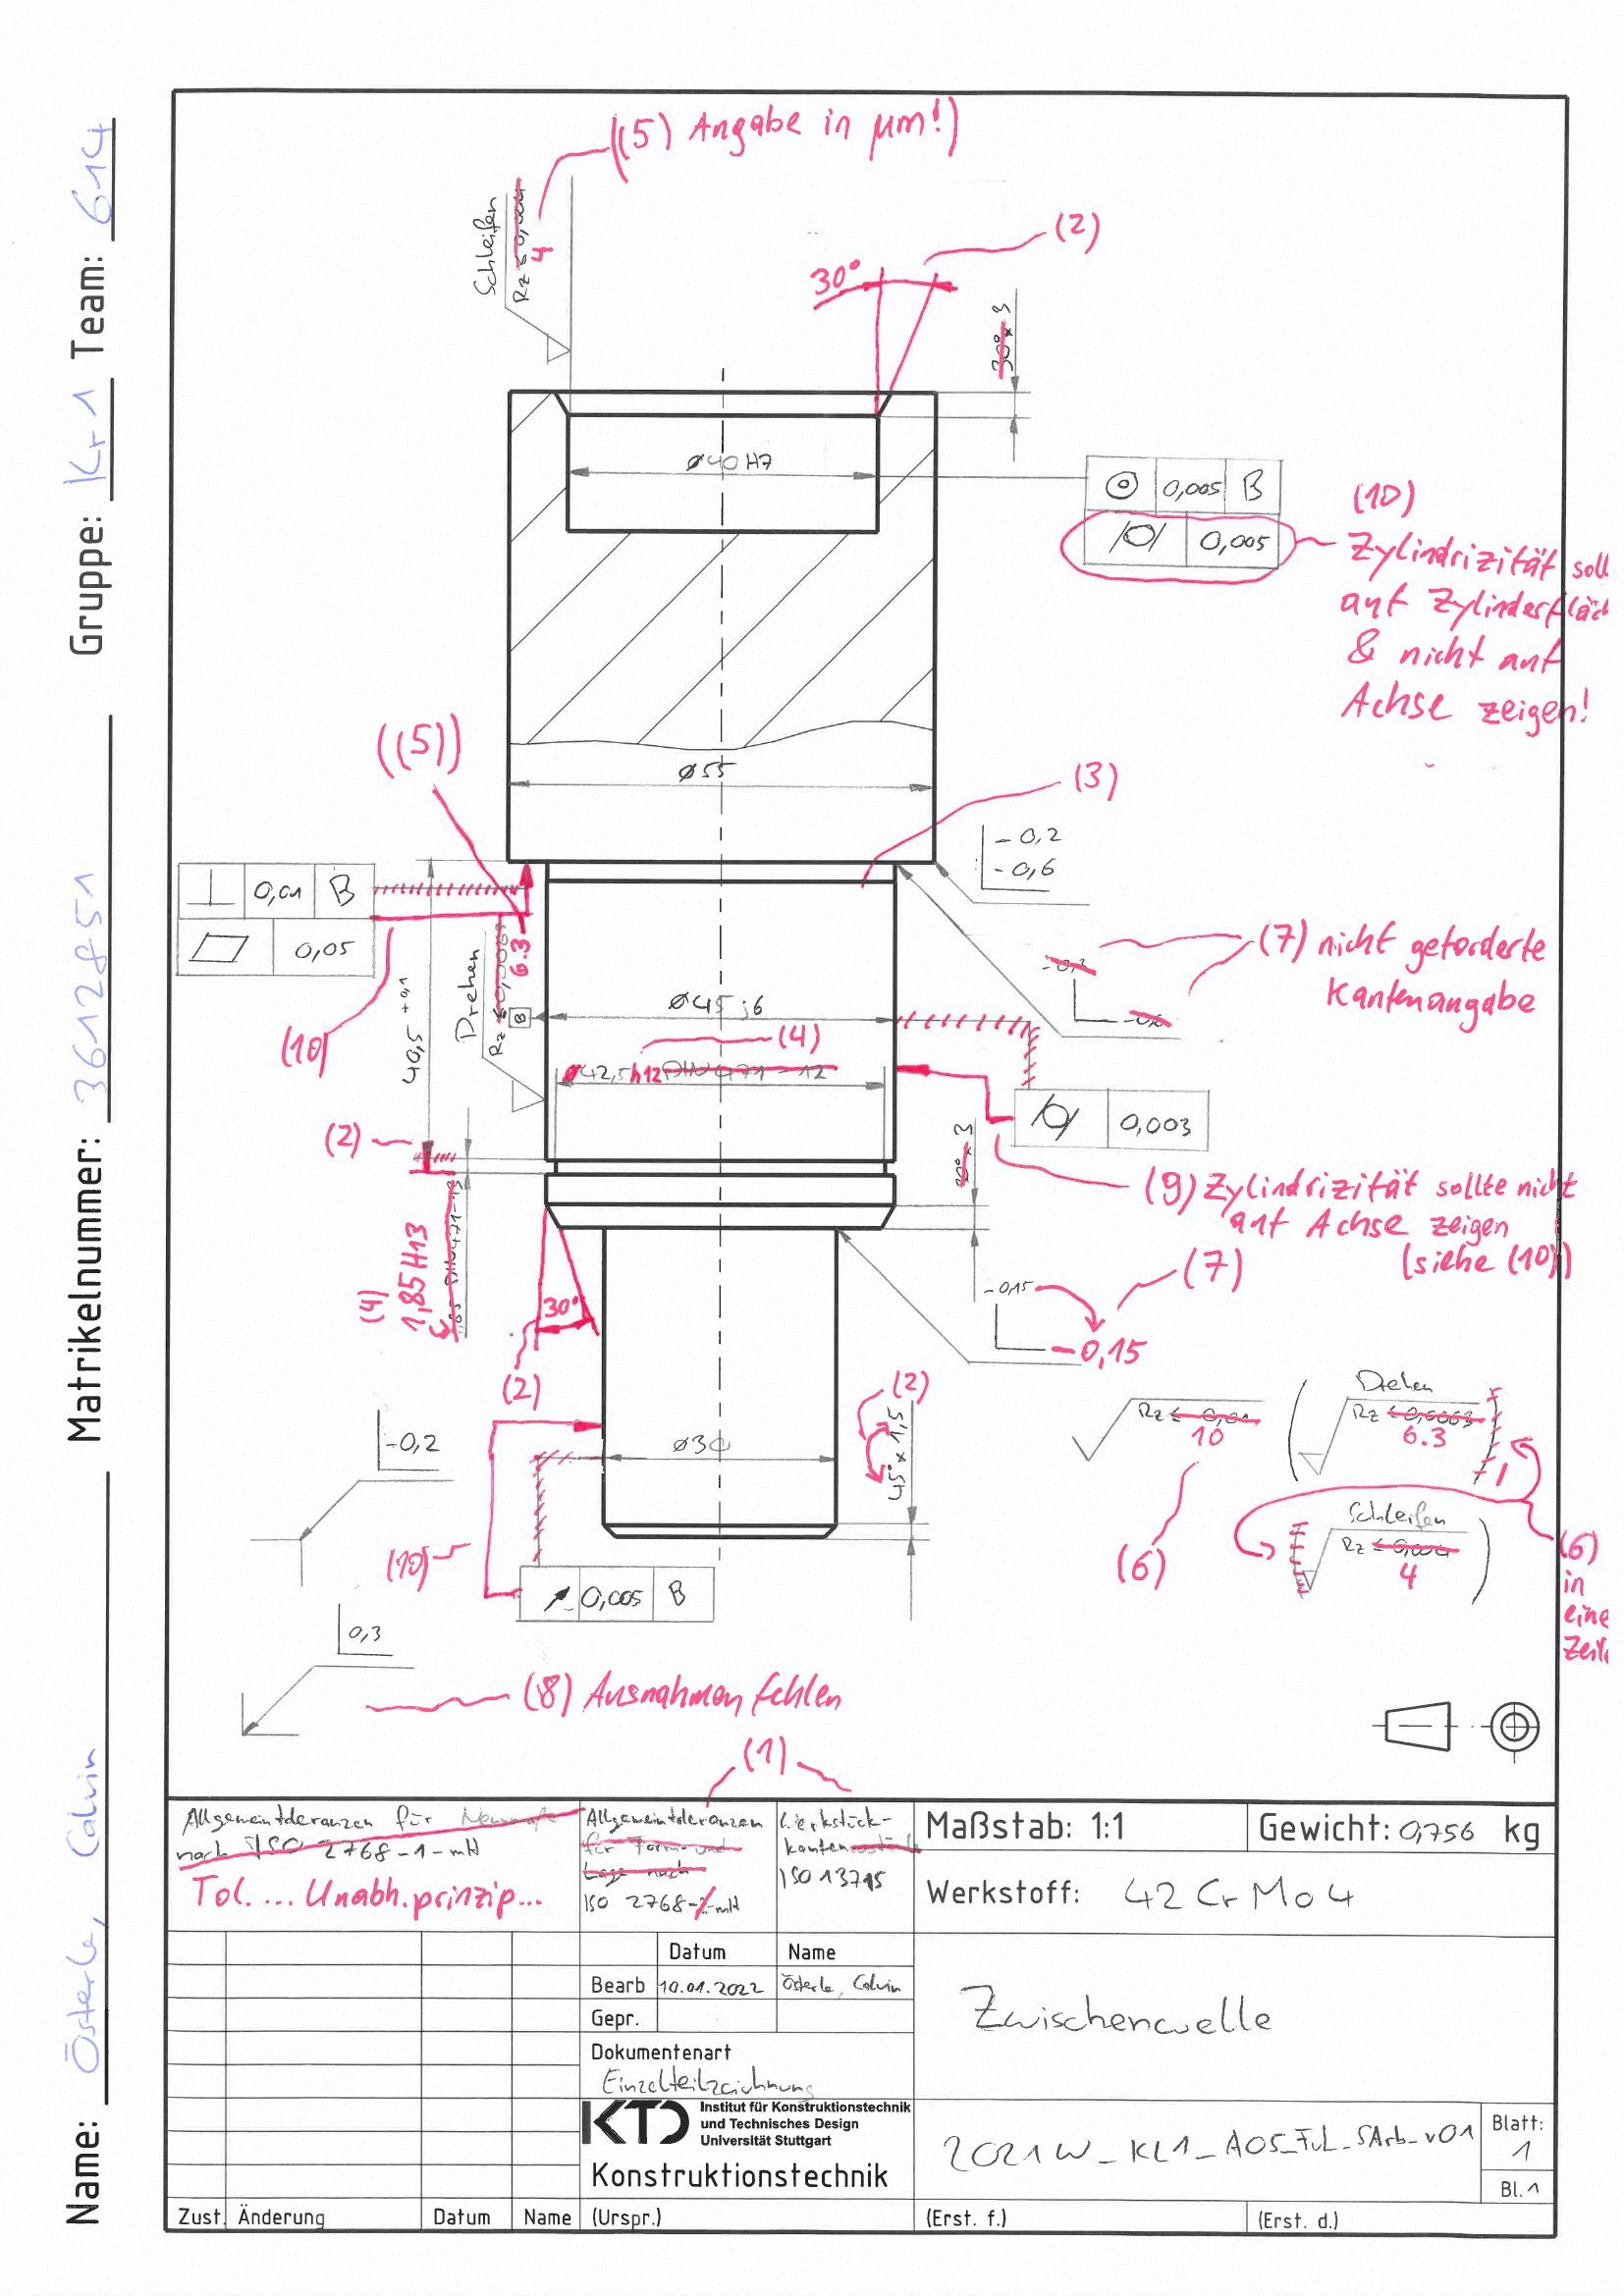 Name: Österle, Calvin
Matrikelnummer: 3612851
Gruppe: Kr1 Team: 614
((5) Angabe in µm!)
Schleifen
Rz ≤ 0,004
4
(2)
30°
30° x 3
Ø40 H7
0,005 B
0,005
(10)
Zylindrizität soll
auf Zylinderfläch
& nicht auf
Achse zeigen!
((5))
Ø55
(3)
-0,2
-0,6
0,01 B
0,05
(7) nicht geforderte
Kantenangabe
(10)
40,5 +0,1
Drehen
Rz ≤ 0,0063
6.3
B
Ø45 j6
(4)
Ø42,5 h12 DIN 471 - 12
0,003
(2)
30° x 3
(9) Zylindrizität sollte nicht
auf Achse zeigen
(siehe (10))
(4)
1,85 H13
-0,15
(7)
-0,15
30°
(2)
(2)
45° x 1,5
Ø30
-0,2
(10)
0,005 B
Rz ≤ 0,01
10
Drehen
Rz ≤ 0,0063
6.3
Schleifen
Rz ≤ 0,004
4
(6)
(6)
in
eine
Zeile
0,3
(8) Ausnahmen fehlen
(1)
Allgemeintoleranzen für Nennmaße
nach ISO 2768-1-mH
Tol. ... Unabh.prinzip...
Allgemeintoleranzen
für Form- und
Lage nach
ISO 2768- -mH
Werkstück-
kanten
ISO 13715
Maßstab: 1:1
Gewicht: 0,756 kg
Werkstoff: 42CrMo4
Datum Name
Bearb 10.01.2022 Österle, Calvin
Gepr.
Zwischenwelle
Dokumentenart
Einzelteilzeichnung
KTD Institut für Konstruktionstechnik
und Technisches Design
Universität Stuttgart
Konstruktionstechnik
2021W_KL1_A05_FuL_SArb_v01
Blatt:
1
Bl. 1
Zust. Änderung Datum Name (Urspr.) (Erst. f.) (Erst. d.)